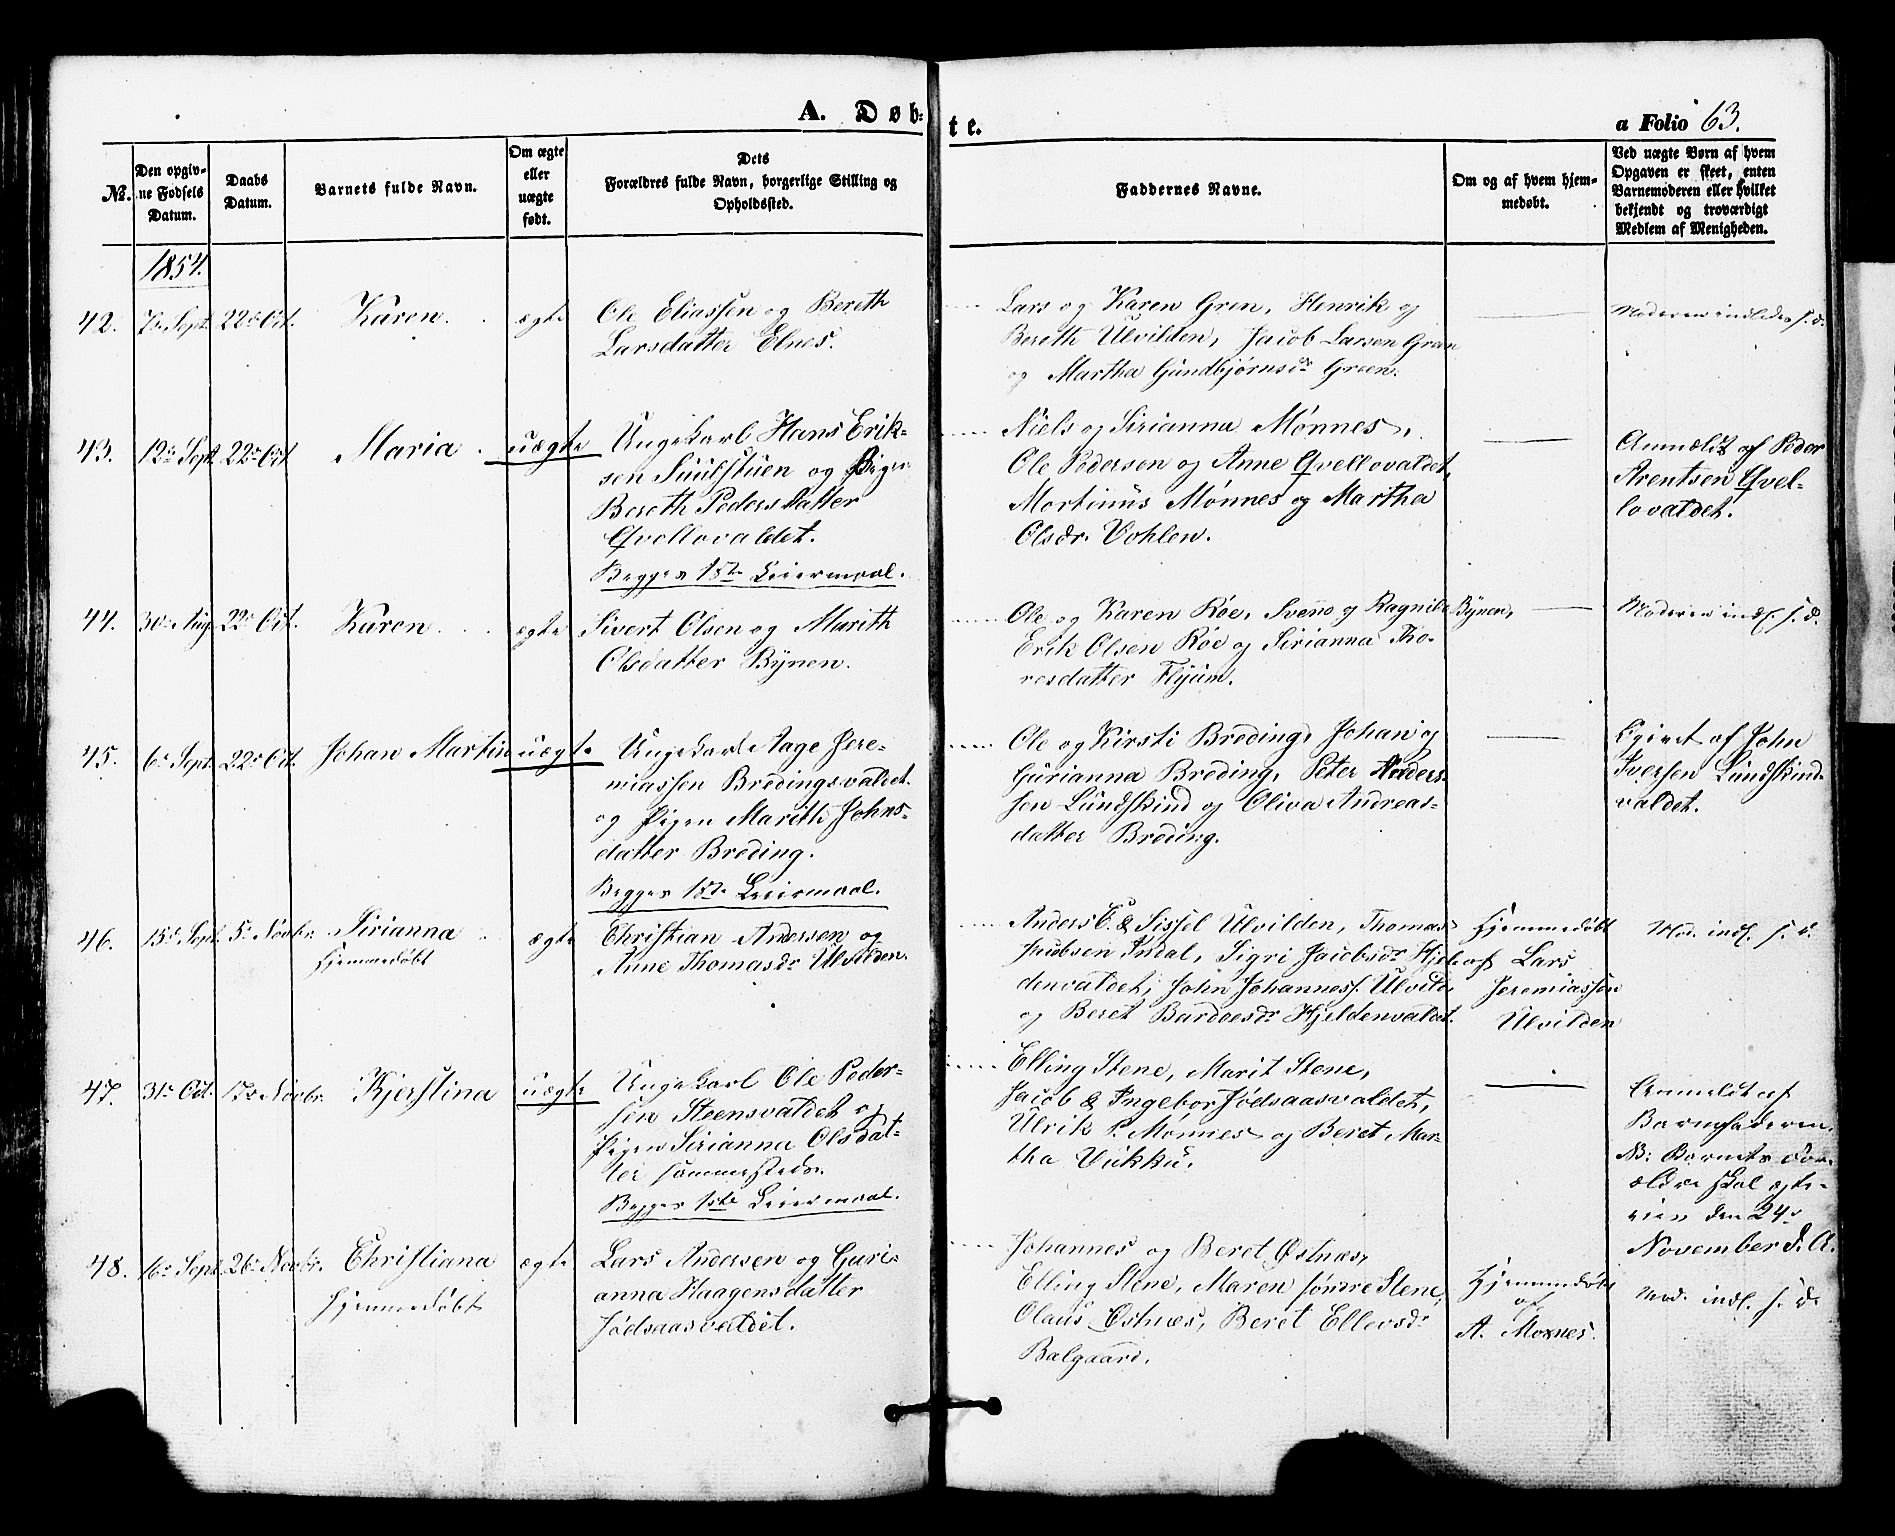 A. Døb-
te.
a Folio 63.
№.
Den opgiv-
ne Fødsels
Datum.
Daabs
Datum.
Barnets fulde Navn.
Om ægte
eller
uægte
født.
Dets
Forældres fulde Navn, borgerlige Stilling og
Opholdssted.
Faddernes Navne.
Om og af hvem hjem-
medøbt.
Ved uægte Børn af hvem
Opgaven er skeet, enten
Barnemoderen eller hvilket
bekjendt og troværdigt
Medlem af Menigheden.
1854.
42. 7de Sept. 22de Oct. Karen. ægte
Ole Eliassen og Bereth
Larsdatter Elnes.
Lars og Karen Gren, Henrik og
Bereth Ulvilden, Jacob Larsen Green
og Martha Gundbjørnsdr Green.
Moderen indledes s. d.
43. 12te Sept. 22de Oct. Maria. uægte
Ungekarl Hans Erik-
sen Suulstuen og Pigen
Bereth Pedersdatter
Qvellovaldet.
Begges 1ste Leiermaal.
Niels og Sirianna Mønnes,
Ole Pedersen og Anne Qvellovaldet,
Mortinus Mønnes og Martha
Olsdr. Vohlen.
Anmeldt af Peder
Arentsen Qvel-
lovaldet.
44. 30te Aug. 22de Oct. Karen. ægte
Sivert Olsen og Marith
Olsdatter Bynen.
Ole og Karen Røe, Svend og Ragnild Bynen,
Erik Olsen Røe og Sirianna Tho-
resdatter Flyum.
Moderen indl. s. d.
45. 6te Sept. 22de Oct. Johan Martin uægte
Ungekarl Aage Jere-
miassen Bredingsvaldet
og Pigen Marith Johns-
datter Breding.
Begges 1ste Leiermaal.
Ole og Kirsti Breding, Johan og
Gurianna Breding, Peter Anders-
sen Lundskind og Oliva Andreas-
datter Breding.
Opgivet af John
Iversen Lundskind-
valdet.
46. 15de Sept. 5te Novbr. Sirianna ægte
Hjemmedøbt
Christian Andersen og
Anne Thomasdr Ulvilden.
Anders E. & Sissel Ulvilden, Thomas
Jacobsen Indal, Sigri Jacobsdr Hjel-
denvaldet, John Johanness. Ulvild.
og Beret Bardoesdr Hjeldenvaldet.
Hjemmedøbt
af Lars
Jeremiassen
Ulvilden
Mod. indl. s. d.
47. 31te Oct. 17de Novbr. Kjerstina uægte
Ungekarl Ole Peder-
sen Steensvaldet og
Pigen Sirianna Olsdat-
ter sammesteds.
Begges 1ste Leiermaal.
Elling Stene, Marit Stene,
Jacob & Ingebor Jødsaasvaldet,
Ulrik P. Mønnes og Beret Mar-
tha Vukku.
Anmeldt af
Barnefaderen.
NB: Barnets For-
ældre skal ægte-
vies den 24de
November d. A.
48. 16de Sept. 26de Novbr. Christiana ægte
Hjemmedøbt
Lars Andersen og Guri-
anna Haagensdatter
Jødsaasvaldet.
Johannes og Beret Østnæs,
Elling Stene, Maren søndre Stene,
Olaus Østnæs, Beret Ellevsdr
Balgaard.
Hjemmedøbt
af
A. Moxnes.
Mod. indl. s. d.